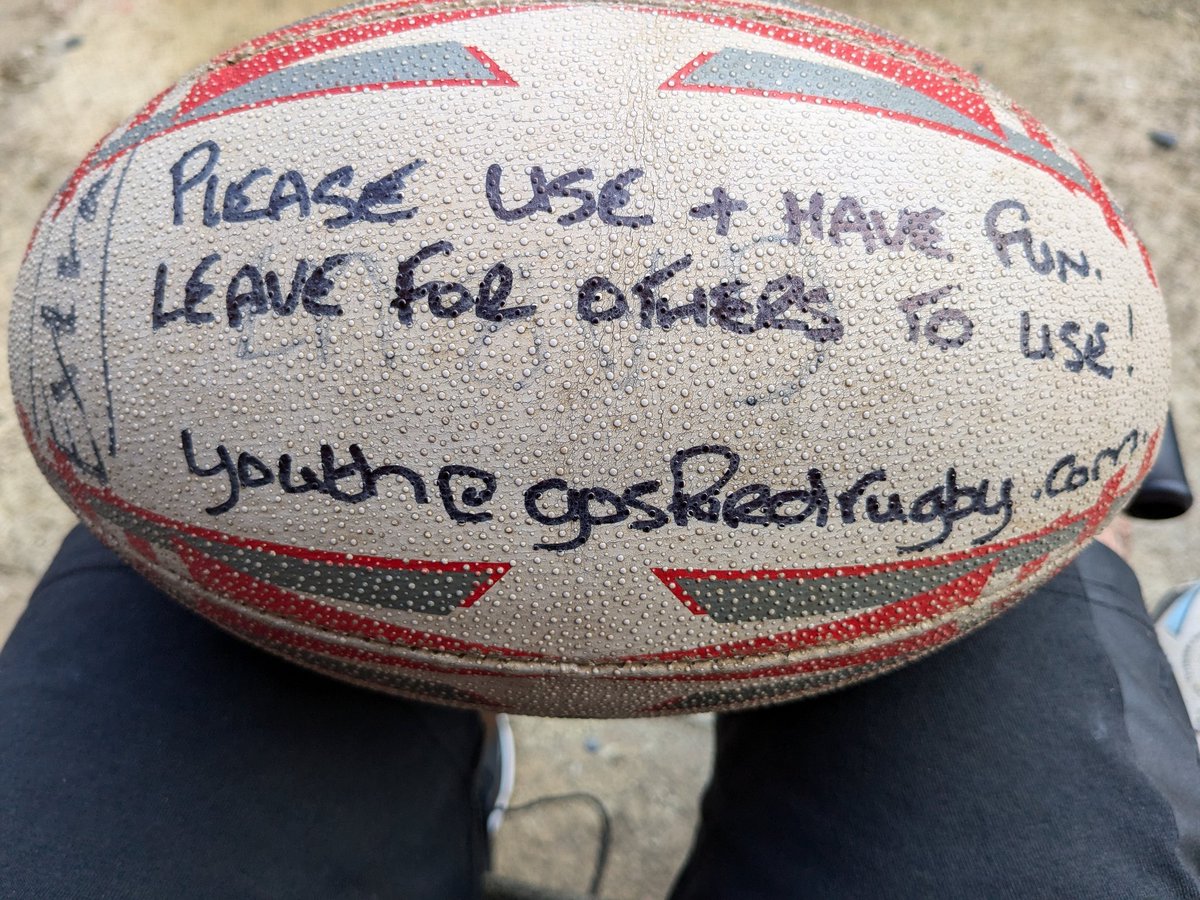 PLEASE USE + HAVE FUN.
LEAVE FOR OTHERS TO USE!
youth@gpsktredrugby.com.